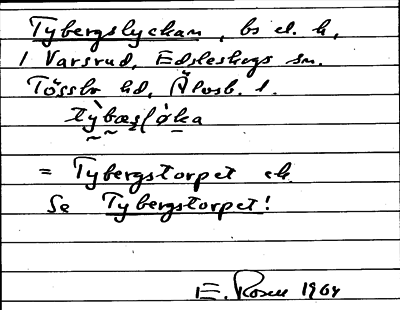 Tybergslyckan, bs el. h,
1 Varsrud, Edsleskogs sn.
Tössbo hd, Älvsb. l.
tỳbæsl̀øka
= Tybergstorpet ek
Se Tybergstorpet!
E. Rosell 1964